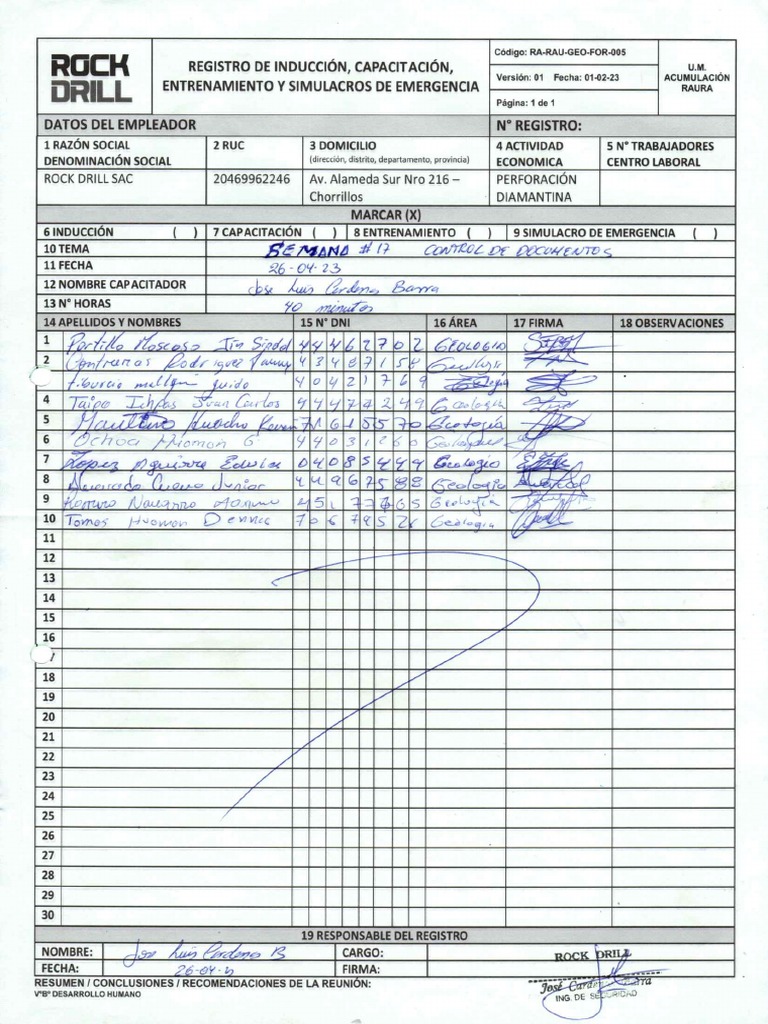 ROCK DRILL
REGISTRO DE INDUCCIÓN, CAPACITACIÓN, ENTRENAMIENTO Y SIMULACROS DE EMERGENCIA
Código: RA-RAU-GEO-FOR-005
Versión: 01 Fecha: 01-02-23
Página: 1 de 1
U.M. ACUMULACIÓN RAURA
DATOS DEL EMPLEADOR N° REGISTRO:
1 RAZÓN SOCIAL DENOMINACIÓN SOCIAL 2 RUC 3 DOMICILIO (dirección, distrito, departamento, provincia) 4 ACTIVIDAD ECONOMICA 5 N° TRABAJADORES CENTRO LABORAL
ROCK DRILL SAC 20469962246 Av. Alameda Sur Nro 216 – Chorrillos PERFORACIÓN DIAMANTINA
MARCAR (X)
6 INDUCCIÓN ( ) 7 CAPACITACIÓN ( ) 8 ENTRENAMIENTO ( ) 9 SIMULACRO DE EMERGENCIA ( )
10 TEMA SEMANA #17 CONTROL DE DOCUMENTOS
11 FECHA 26-04-23
12 NOMBRE CAPACITADOR Jose Luis Cardenas Barra
13 N° HORAS 40 minutos
14 APELLIDOS Y NOMBRES 15 N° DNI 16 ÁREA 17 FIRMA 18 OBSERVACIONES
1 Portillo Moscoso 44462702 GEOLOGIA
2 Contreras Rodriguez 43487158 Geologia
Tiburcio guido 40421769 Geologia
4 Taipe Ichpas Juan Carlos 44474249 Geologia
5 Huacho Geologia
6 Ochoa Huaman G 44031260
7 Lopez Aguirre 04085499 Geologia
8 Junior 44967588 Geologia
9 Navarro Geologia
10 Tomas Huaman Dennis Geologia
11
12
13
14
15
16
18
19
20
21
22
23
24
25
26
27
28
29
30
19 RESPONSABLE DEL REGISTRO
NOMBRE: Jose Luis Cardenas B CARGO:
FECHA: FIRMA:
ROCK DRILL
ING. DE SEGURIDAD
RESUMEN / CONCLUSIONES / RECOMENDACIONES DE LA REUNIÓN:
V°B° DESARROLLO HUMANO